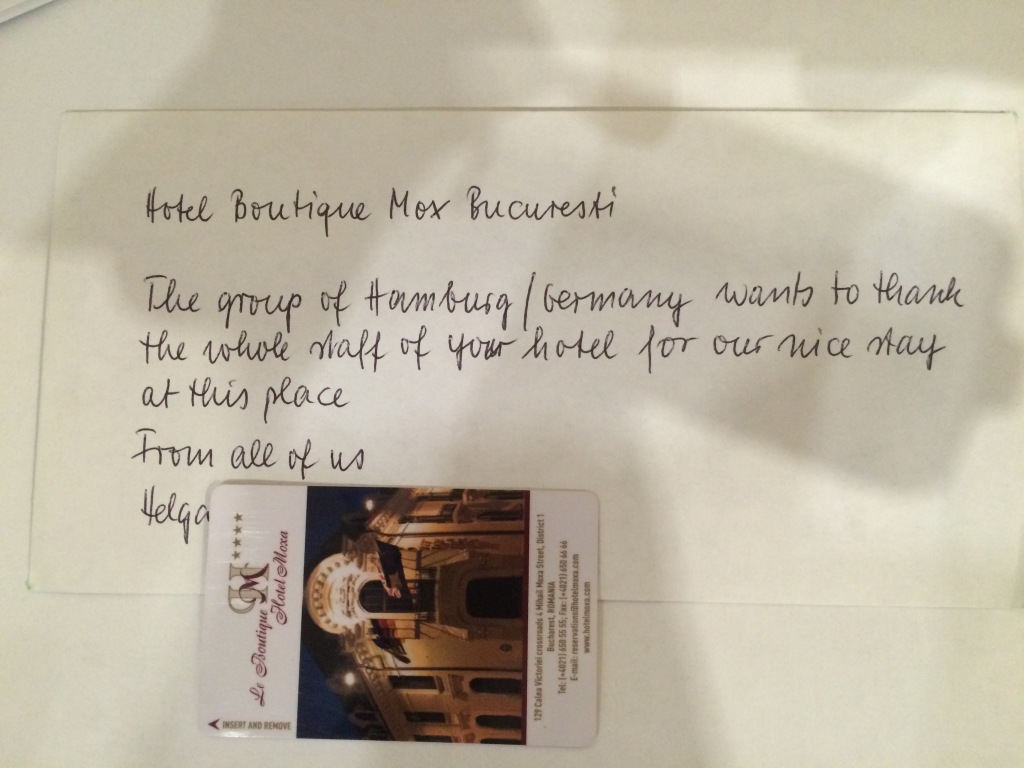 Hotel Boutique Mox Bucuresti
The group of Hamburg/Germany wants to thank
the whole staff of your hotel for our nice stay
at this place
From all of us
Helga
Le Boutique
Hotel Moxa
INSERT AND REMOVE
129 Calea Victoriei crossroads 4 Mihail Moxa Street, District 1
Bucharest, ROMANIA
Tel: (+4021) 650 55 55; Fax: (+4021) 650 66 66
E-mail: reservations@hotelmoxa.com
www.hotelmoxa.com